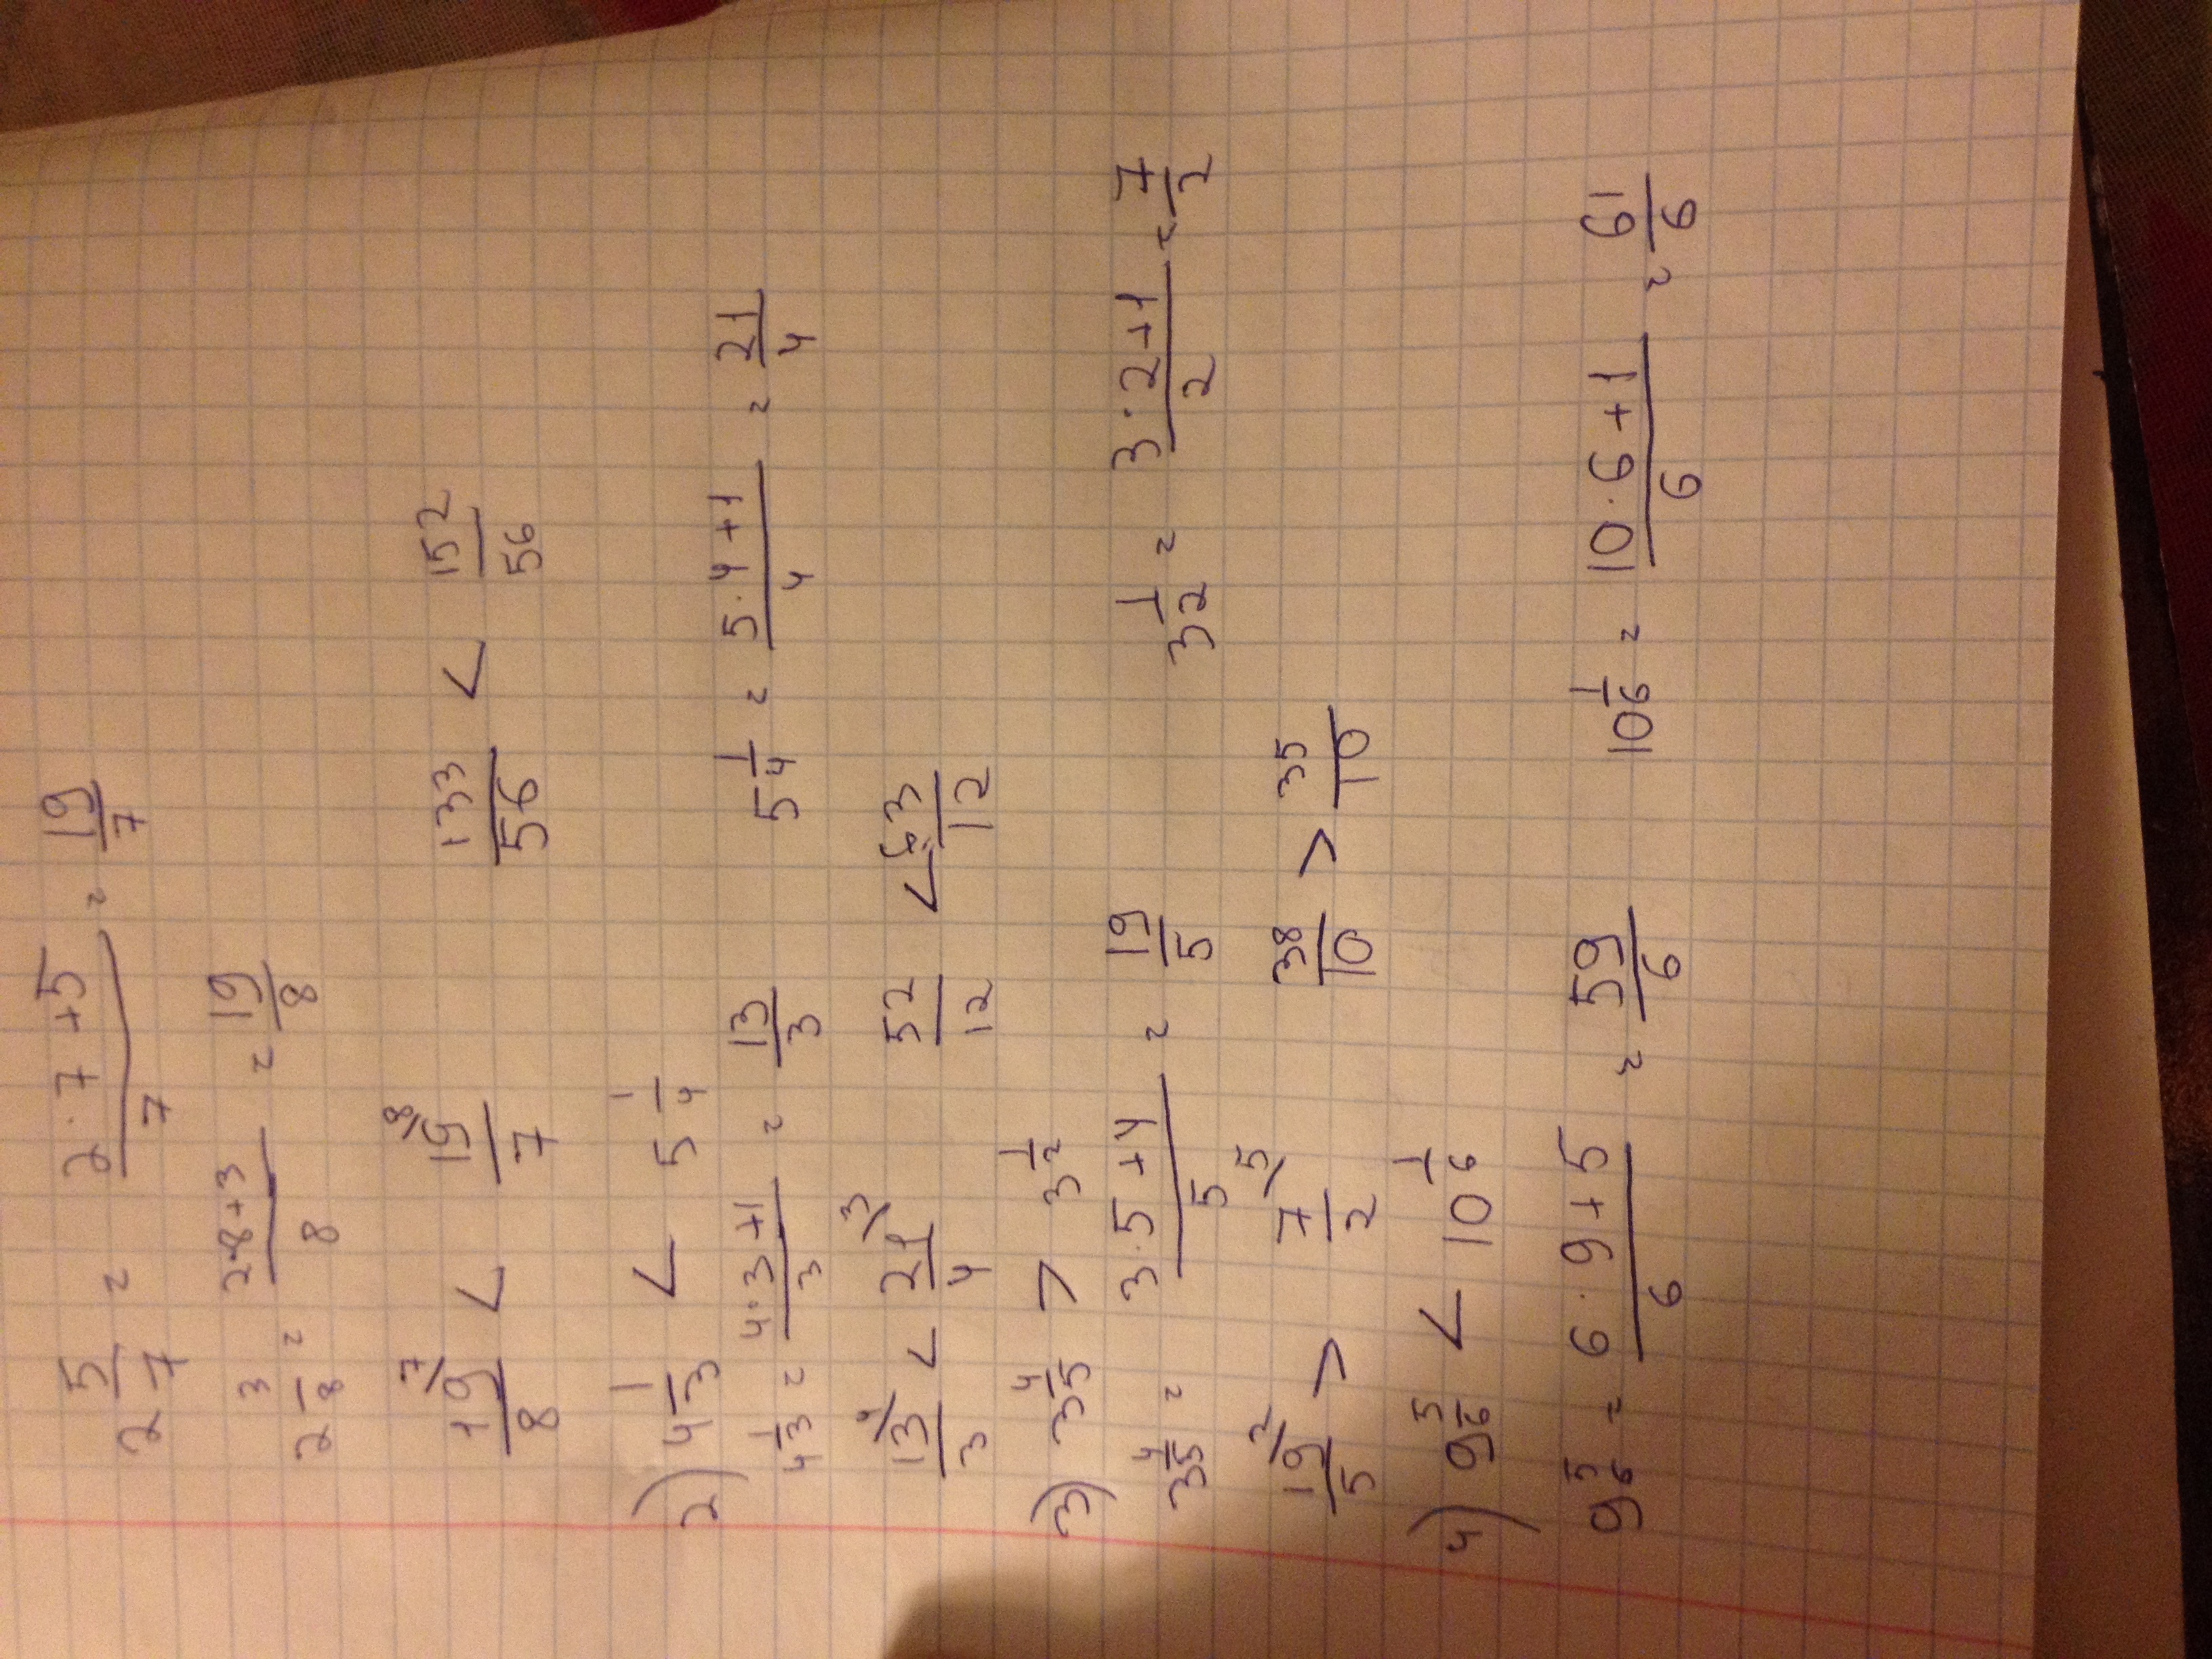 2 5/7 = (2·7+5)/7 = 19/7
2 3/8 = (2·8+3)/8 = 19/8
19\7/8 < 19\8/7 133/56 < 152/56
2) 4 1/3 < 5 1/4
4 1/3 = (4·3+1)/3 = 13/3 5 1/4 = (5·4+1)/4 = 21/4
13\4/3 < 21\3/4 52/12 < 63/12
3) 3 4/5 > 3 1/2
3 4/5 = (3·5+4)/5 = 19/5 3 1/2 = (3·2+1)/2 = 7/2
19\2/5 > 7\5/2 38/10 > 35/10
4) 9 5/6 < 10 1/6
9 5/6 = (6·9+5)/6 = 59/6 10 1/6 = (10·6+1)/6 = 61/6